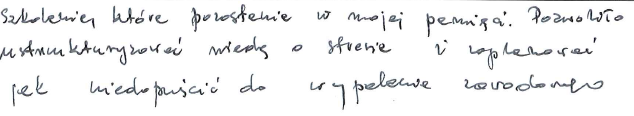 Szkolenie, które pozostanie w mojej pamięci. Pozwoliło
ustrukturyzować wiedzę o stresie i zaplanować
jak niedopuścić do wypalenia zawodowego